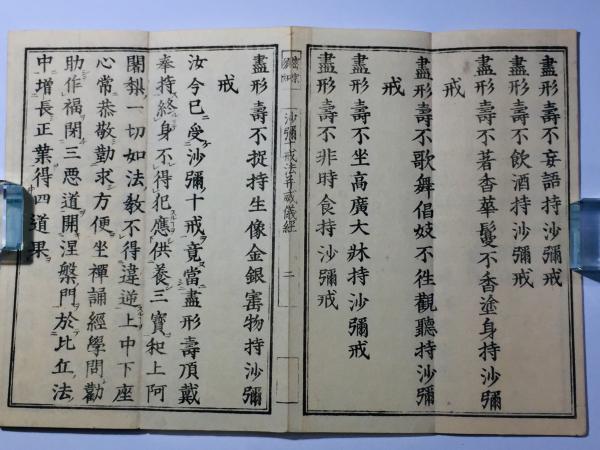 盡形壽不妄語持沙彌戒
盡形壽不飲酒持沙彌戒
盡形壽不著香華鬘不香塗身持沙彌
戒
盡形壽不歌舞倡妓不徃觀聽持沙彌
戒
盡形壽不坐高廣大牀持沙彌戒
盡形壽不非時食持沙彌戒
沙彌十戒法并威儀經
二
盡形壽不捉持生像金銀寶物持沙彌
戒
汝今已受沙彌十戒竟當盡形壽頂戴
奉持終身不得犯應供養三寶和上阿
闍梨一切如法教不得違逆上中下座
心常恭敬勤求方便坐禪誦經學問勸
助作福閉三惡道開涅槃門於比丘法
中增長正業得四道果